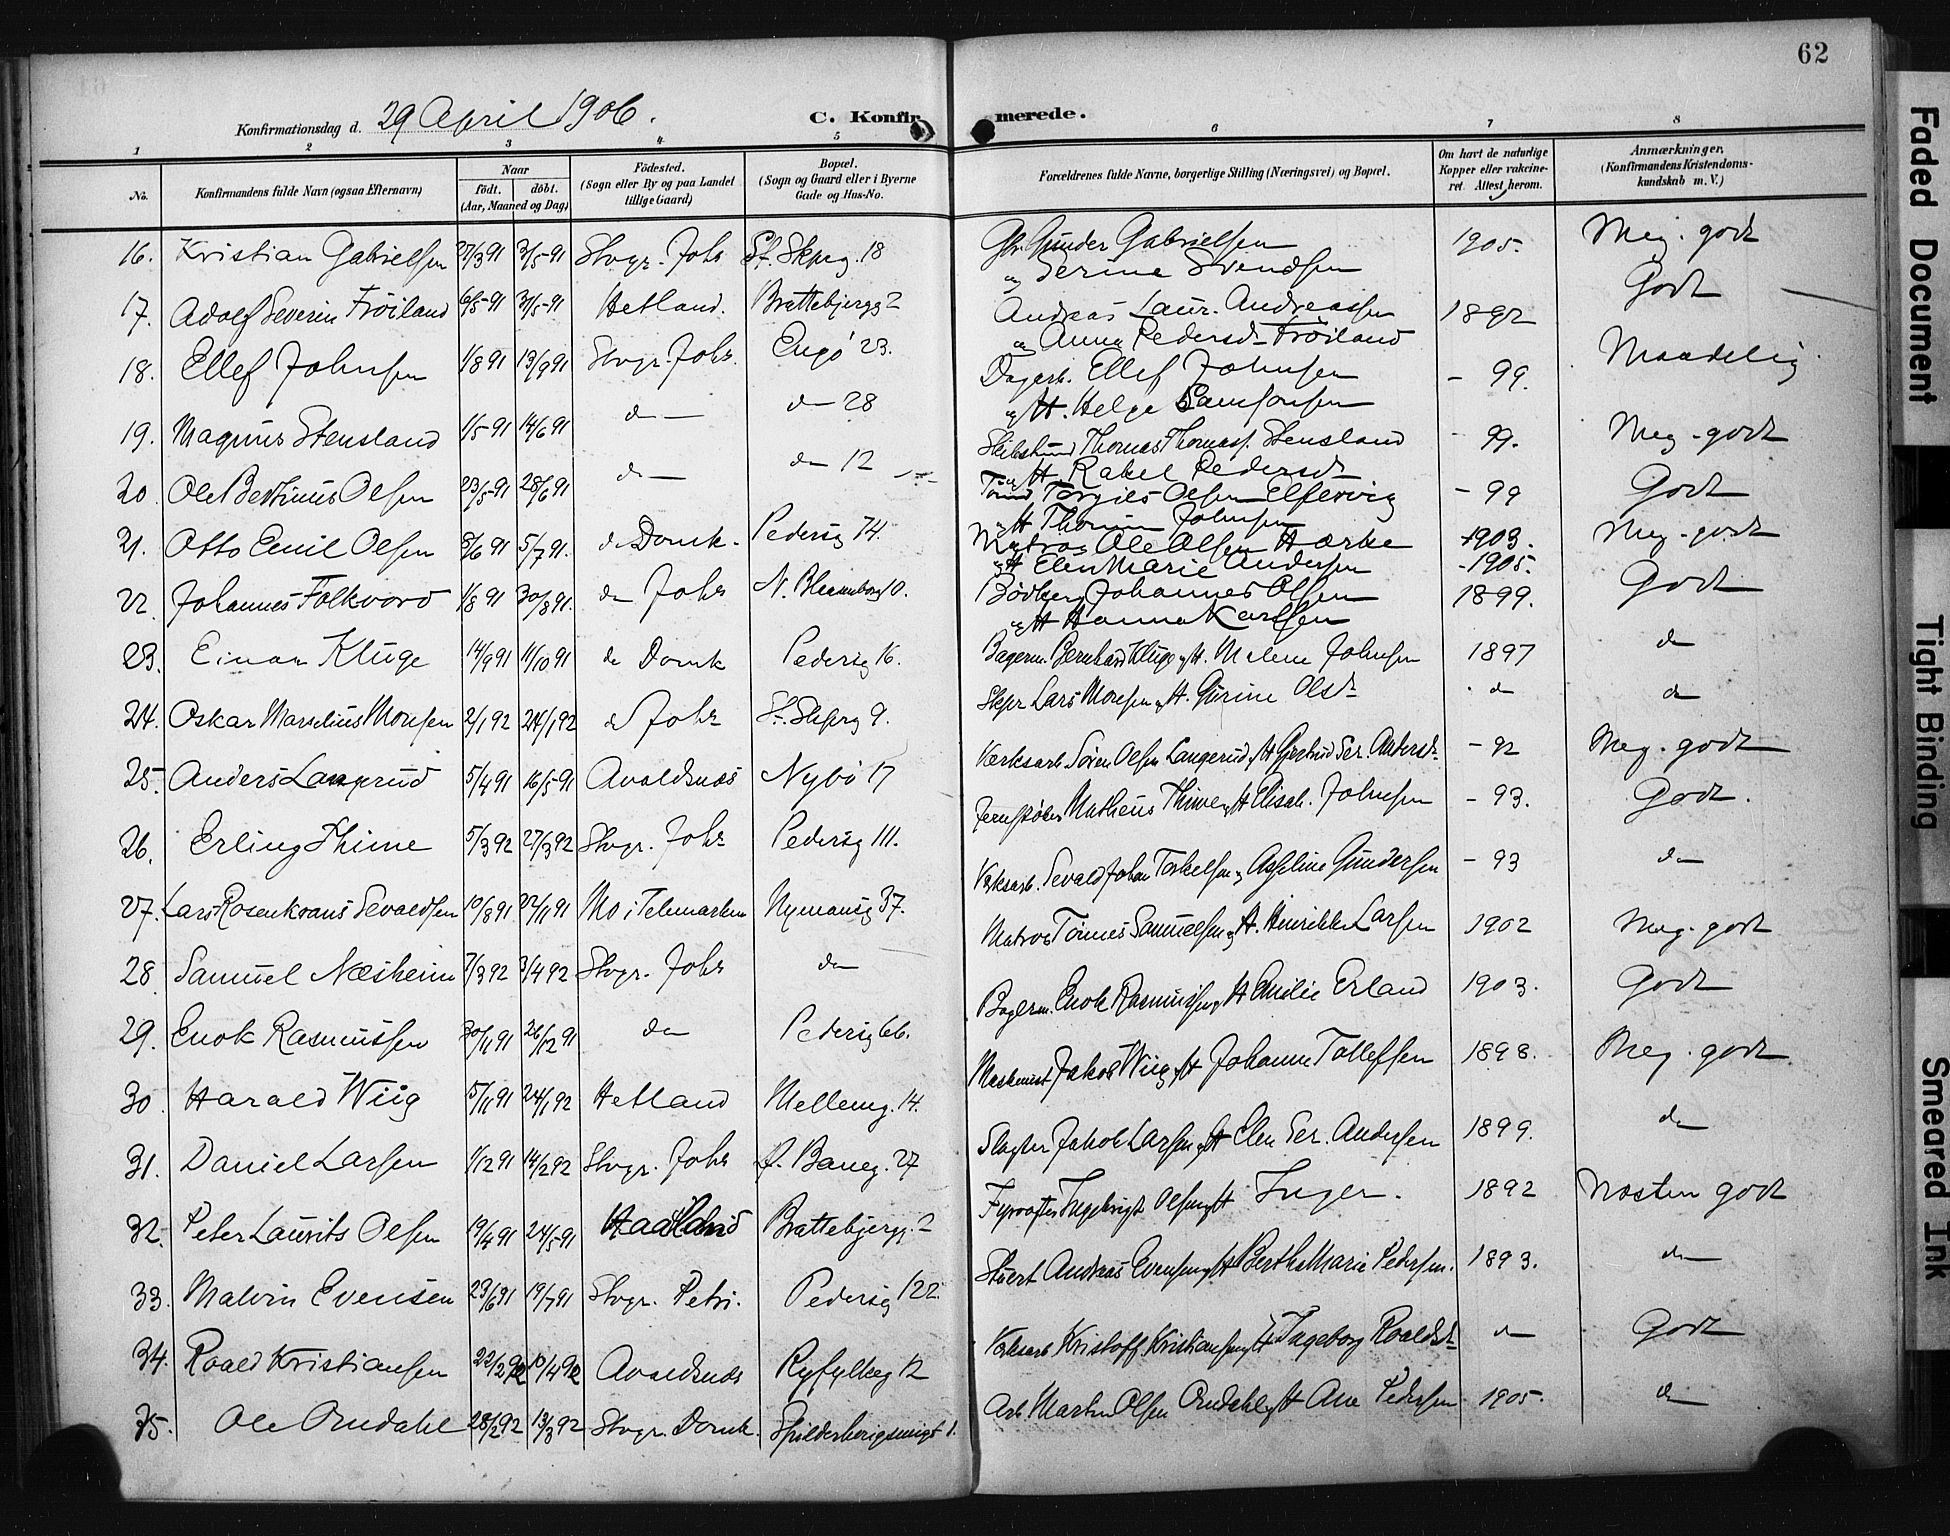 62
Konfirmationsdag d. 29 April 1906.
C. Konfirmerede.
1 2 3 4 5 6 7 8
No.
Konfirmandens fulde Navn (ogsaa Efternavn)
Naar
født. døbt.
(Aar, Maaned og Dag)
Fødested.
(Sogn eller By og paa Landet
tillige Gaard)
Bopæl.
(Sogn og Gaard eller i Byerne
Gade og Hus-No.
Forældrenes fulde Navne, borgerlige Stilling (Næringsvei) og Bopæl.
Om havt de naturlige
Kopper eller vakcine-
ret. Attest herom.
Anmærkninger.
(Konfirmandens Kristendoms-
kundskab m. V.)
16. Kristian Gabrielsen 27/3 91 3/5-91 Stvgr. Johs St. Skprg. 18 Gunder Gabrielsen 1905. Meg. godt
og Serine Svendsen
17. Adolf Severin Fröiland 6/5-91 31/5-91 Hetland. Brattebjergg 2 Andreas Laur. Andreassen 1892 Godt
og Anna Pedersd. Fröiland
18. Ellef Johnsen 1/8 91 13/9 91 Stvgr. Johs. Engö 23. Dagarb. Ellef Johnsen - 99. Maadelig
og H. Helge Samsonsen
19. Magnus Stensland 1/5-91 14/6 91 do do 28 Thomas Thomass. Stensland - 99. Meg. godt
og H. Rakel Pedersdr
20. Ole Bertinius Olsen 23/5-91 28/6 91 do do 12 Torgies Olsen Elfervig - 99 Godt
og H. Johnsen
21. Otto Emil Olsen 8/6 91 5/7 91. do Domk. Pedersg 74. Matros Ole Olsen 1903. Meg. godt
og H Elen Marie Andersen - 1905.
22 Johannes Folkvord 1/8 91 30/8 91. do Johs N. Blaasenborg 10. Bödker Johannes Olsen 1899. Godt
og H Hanna Karlsen
23. Einar Kluge 14/9 91 11/10 91 do Domk Pedersg 16. Bagerm. Bernhard Kluge og H. Malene Johnsen 1897 do
24. Oskar Marselius Monsen 2/1 92 24/1 92 do Johs St. Skprg 9. Skpr Lars Monsen og H. Gurine Olsdr do do
25. Anders Langerud 5/4 91 16/5-91 Avaldsnes Nybö 17 Værksarb Sören Olsen Langerud og H Gjertrud Ser. Andersdr. - 92 Meg. godt
26. Erling Thime 5/3 92 27/3 92 Stvgr. Johs Pedersg 111. Jernstöber Matheus Thime og H Elisab. Johnsen - 93. Godt.
27. Lars Rosenkrans Sevaldsen 10/8 91 22/11 91 Mo i Telemarken Nymansg 37. Værksarb. Sevald Johan Torkelsen og Asseline Gundersen - 93 do
28. Samuel Næsheim 7/3 92 3/4 92 Stvgr. Johs do Matros Tönnes Samuelsen og H. Hinrikke Larsen 1902 Meg. godt
29. Enok Rasmussen 30/11 91 26/12 91 do Pedersg 66. Bagerm. Enok Rasmussen og H Emilie Erland 1903. Godt
30. Harald Wiig 5/11 91 24/1 92 Hetland Mellemg. 14. Maskinist Jakob Wiig og H Johanne Tollefsen 1898. Meg. godt
31. Daniel Larsen 1/12 91 14/2 92 Stvgr. Johs Baneg. 27 Slagter Jakob Larsen og H Elen Ser. Andersen 1899. do
32. Peter Laurits Olsen 19/4 91 24/5-91 Brattebjergg. 2 Ingebrigt Olsen og H Inger. 1892 Næsten godt
33. Malvin Evensen 23/6 91 19/7 91 Stvgr. Petri. Pedersg 122. Stuert Andreas Evensen og H Bertha Marie Pedersen. 1893. do
34. Roald Kristiansen 22/2 92 10/4 92 Avaldsnes Ryfylkeg 12 Værksarb Kristoff. Kristiansen og H Ingeborg Roaldsdr do Godt
35. Ole Omdahl 28/2 92 13/3 92 Stvgr. Domk. Spilderhaugsmgt 1. Arb Martin Olsen Omdahl og H Ane Pedersen 1905. do
Faded Document
Tight Binding
Smeared Ink